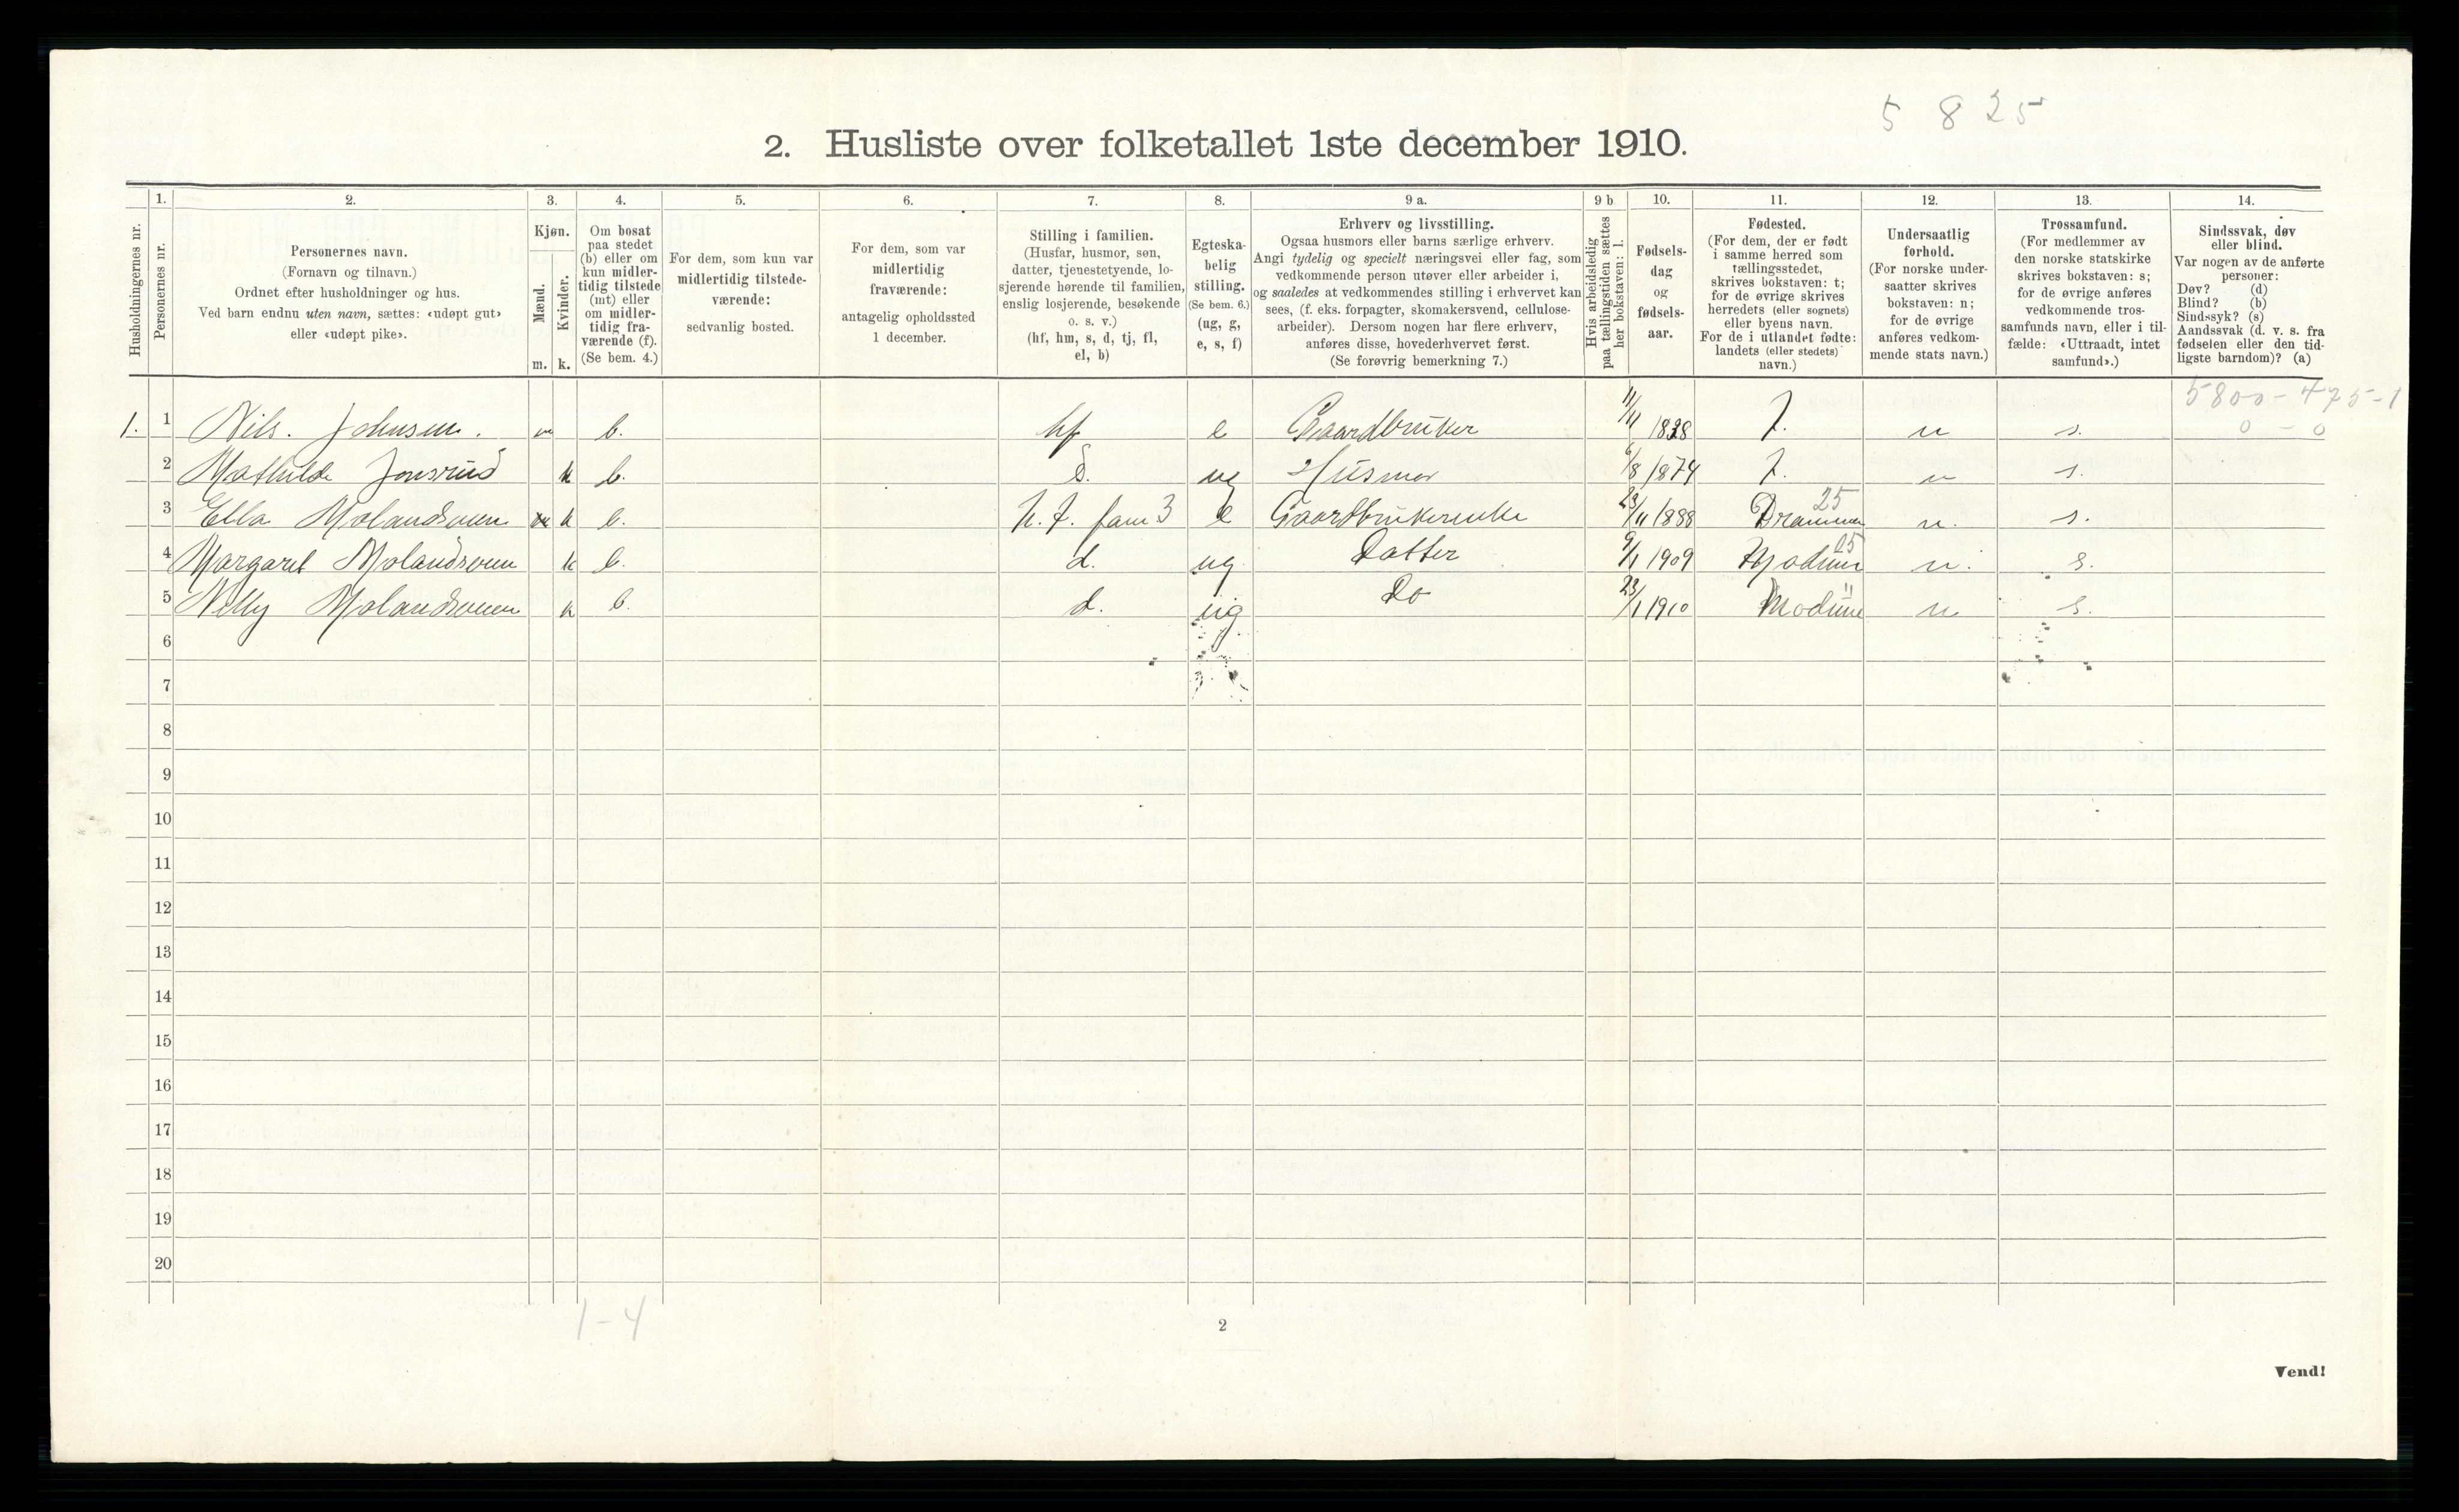 5 825
2. Husliste over folketallet 1ste december 1910.
1. 2. 3. 4. 5. 6. 7. 8. 9 a. 9 b 10. 11. 12. 13. 14.
Husholdningernes nr.
Personernes nr.
Personernes navn.
(Fornavn og tilnavn.)
Ordnet efter husholdninger og hus.
Ved barn endnu uten navn, sættes: «udøpt gut»
eller «udøpt pike».
Kjøn.
Mænd.
m.
Kvinder.
k.
Om bosat
paa stedet
(b) eller om
kun midler-
tidig tilstede
(mt) eller
om midler-
tidig fra-
værende (f).
(Se bem. 4.)
For dem, som kun var
midlertidig tilstede-
værende:
sedvanlig bosted.
For dem, som var
midlertidig
fraværende:
antagelig opholdssted
1 december.
Stilling i familien.
(Husfar, husmor, søn,
datter, tjenestetyende, lo-
sjerende hørende til familien,
enslig losjerende, besøkende
o. s. v.)
(hf, hm, s, d, tj, fl,
el, b)
Egteska-
belig
stilling.
(Se bem. 6.)
(ug, g,
e, s, f)
Erhverv og livsstilling.
Ogsaa husmors eller barns særlige erhverv.
Angi tydelig og specielt næringsvei eller fag, som
vedkommende person utøver eller arbeider i,
og saaledes at vedkommendes stilling i erhvervet kan
sees, (f. eks. forpagter, skomakersvend, cellulose-
arbeider). Dersom nogen har flere erhverv,
anføres disse, hovederhvervet først.
(Se forøvrig bemerkning 7.)
Hvis arbeidsledig
paa tællingstiden sættes
her bokstaven: l.
Fødsels-
dag
og
fødsels-
aar.
Fødested.
(For dem, der er født
i samme herred som
tællingsstedet,
skrives bokstaven: t;
for de øvrige skrives
herredets (eller sognets)
eller byens navn.
For de i utlandet fødte:
landets (eller stedets)
navn.)
Undersaatlig
forhold.
(For norske under-
saatter skrives
bokstaven: n;
for de øvrige
anføres vedkom-
mende stats navn.)
Trossamfund.
(For medlemmer av
den norske statskirke
skrives bokstaven: s;
for de øvrige anføres
vedkommende tros-
samfunds navn, eller i til-
fælde: «Uttraadt, intet
samfund».)
Sindssvak, døv
eller blind.
Var nogen av de anførte
personer:
Døv? (d)
Blind? (b)
Sindssyk? (s)
Aandssvak (d. v. s. fra
fødselen eller den tid-
ligste barndom)? (a)
5800 - 475 - 1
0 - 0
1. 1 Nils. Johnsen. m b. hf e Gaardbruker 11/11 1838 t. n s.
2 Mathilde Jonsrud k b. d. ug Husmor 6/8 1874 t. n s.
3 Ella Molandsveen k b. h. f. fam 3 e Gaardbrukerenke 23/11 1888 Drammen 25 n. s.
4 Margaret Molandsveen k b. d. ug Datter 9/1 1909 Modum 25 n. s.
5 Nelly Molandsveen k b. d. ug Do 23/1 1910 Modum " n s.
6
7
8
9
10
11
12
13
14
15
16
17
18
19
20
1 - 4
2
Vend!